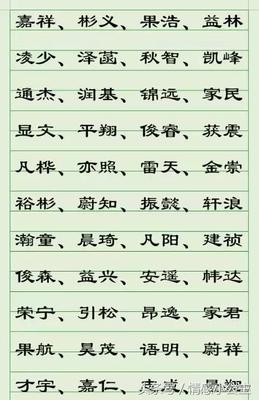 嘉祥、彬义、果浩、益林
凌少、泽菡、秋智、凯峰
通杰、润基、锦远、家民
显文、平翔、俊睿、获震
凡桦、亦照、雷天、金崇
裕彬、蔚知、振懿、轩浪
瀚童、晨琦、凡阳、建祯
俊森、益兴、安遥、帏达
荣宁、引松、昂逸、家君
果航、昊茂、语明、蔚祥
才宇、嘉仁、
头条号/情感小公主